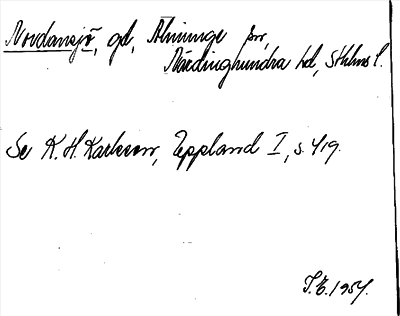 Nordansjö, gd, Almunge sn,
Närdinghundra hd, Sthlms l.
Se K. H. Karlsson, Uppland I, s. 419.
T.E. 1954.